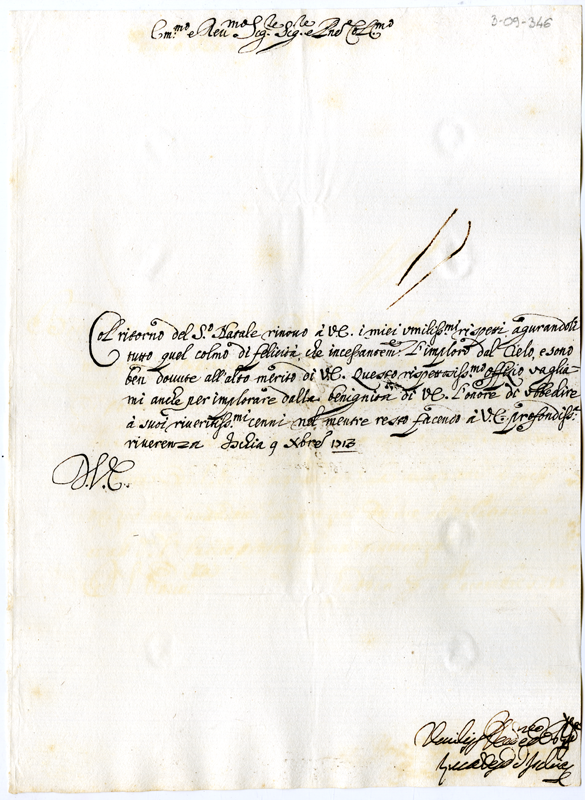 3-09-346
Em.mo e Reu.mo Sig.re Sig.re e Pnē Col.mo
Col ritorno del S.to Natale rinouo à V.E. i miei vmiliss.mi rispeti agurandole
tutto quel colmo di felicità, che incesantem.te L'imploro dal Cielo, e sono
ben douute all'alto merito di V.E. Questo rispettosiss.mo officio vaglia-
mi anche per implorare dalla benignità di V.E. L'onore di vbbedire
à suoi riueritiss.mi cenni nel mentre resto facendo à V.E. profondiss.a
riuerenza Ischia 9 Xbre 1713
D.V.E.